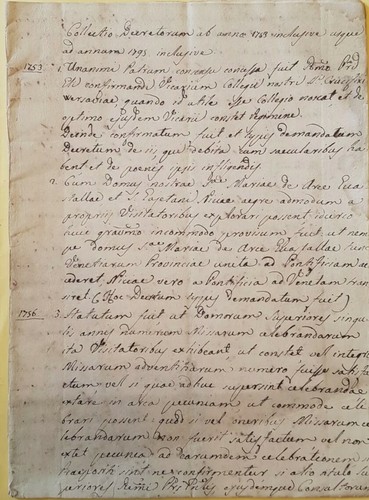 Collectio Decretorum ab anno 1753 inclusive usque
ad annum 1793. inclusive.
1753. Unanimi Patrum consensu concessa fuit
confirmandi Vicarium Collegii nostri
quando id utile ipse Collegio noscat et de
optimo ejusdem Vicarii constet
Deinde confirmatum fuit et typis demandatum
Decretum de iis qui debita cum saecularibus ha
bent et de poenis ipsis infligendis.
2. Cum Domus nostrae Mariae de Arce Gua
stallae et Si Cajetani Niceae aegre admodum a
propriis Visitatoribus explorari possent idcirco
huic incommodo provisum fuit ut nem
pe Domus Mariae de Arce Guastallae hinc
Venetiarum Provinciae unita ad Pontificiam ac
cederet Niceae vero a Pontificia ad Venetam tran
siret (Hoc Decretum typis demandatum fuit)
1756 3. Statutum fuit ut Domorum Superiores singu
lis annis numerum Missarum celebrandarum
ita Visitatoribus exhibeant ut constet vel integro
Missarum adventitiarum numero fuisse satisfa
ctum vel si quae adhuc supersint celebrandae
extare in arca pecuniam ut commode cele
brari possent: quod si vel oneribus Missarum ce
lebrandarum non fuerit satisfactum vel non
extet pecunia ad earumdem celebrationem
sint ne confirmentur si alio
periores ejusdemque Consultorum